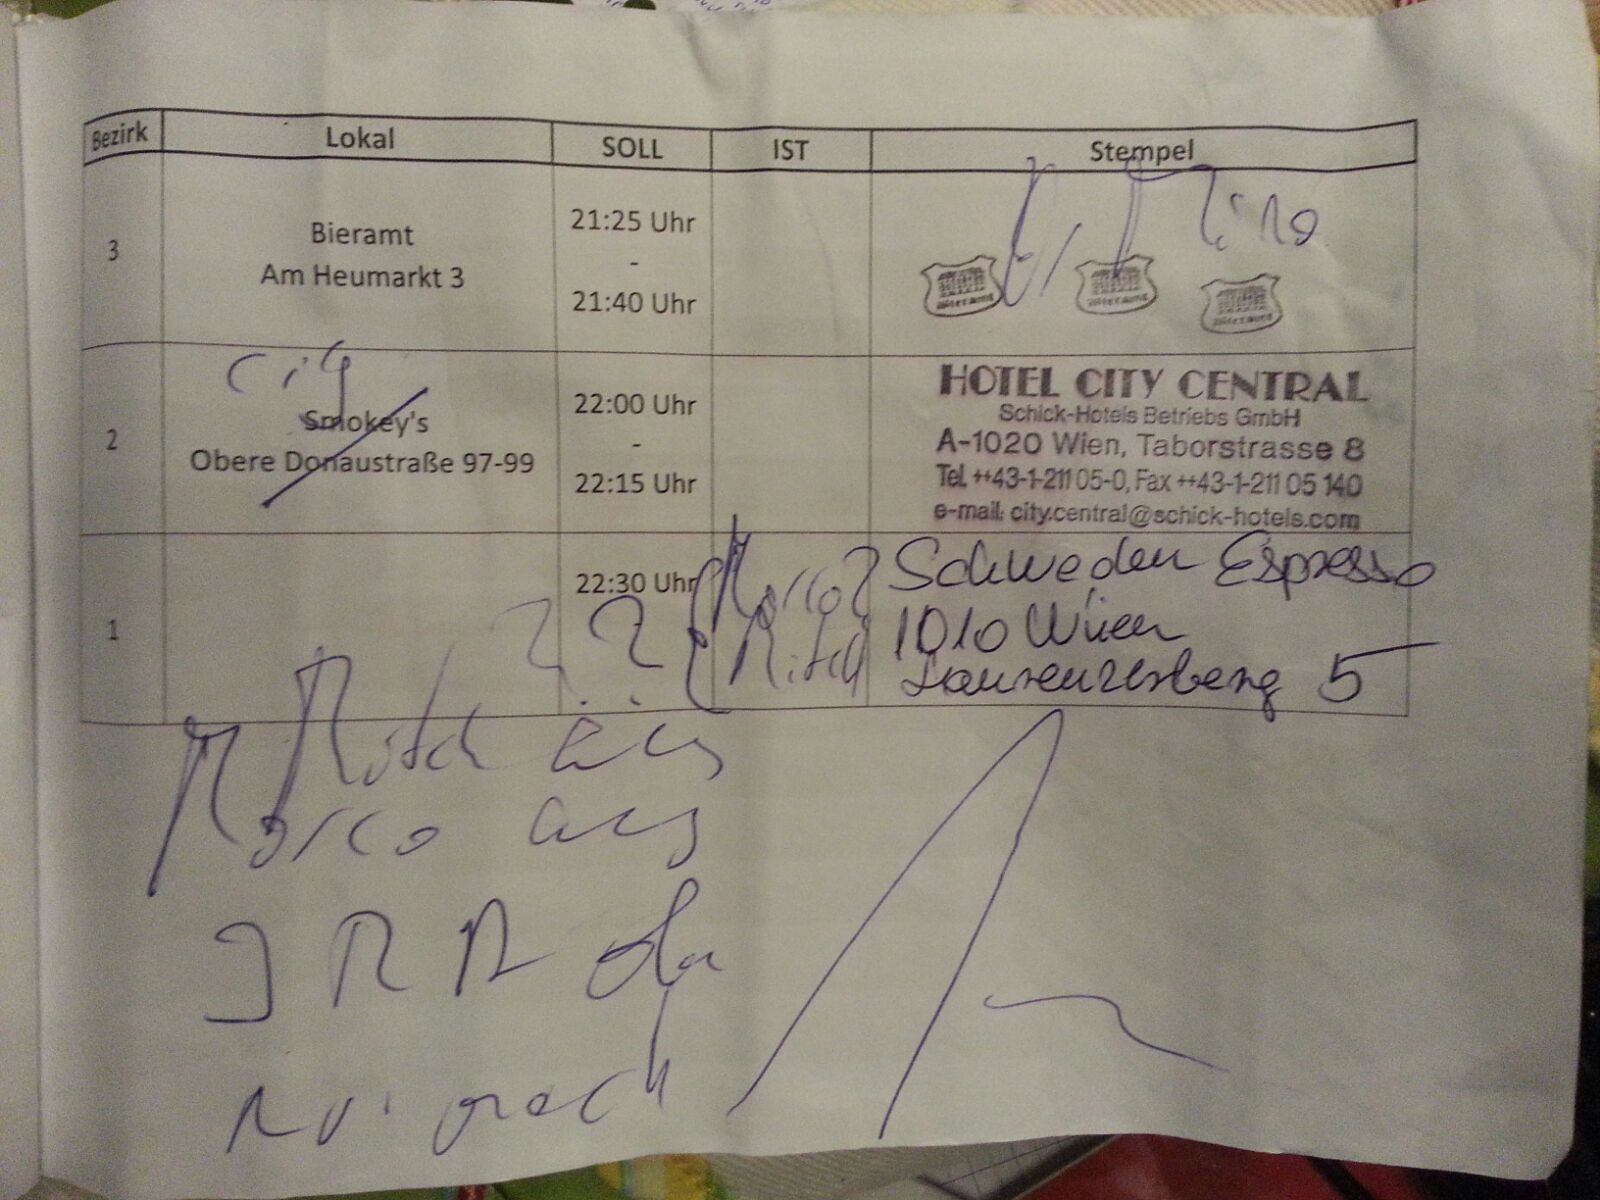 Bezirk Lokal SOLL IST Stempel
3
Bieramt
Am Heumarkt 3
21:25 Uhr
-
21:40 Uhr
Bieramt Bieramt Bieramt
2
City
Smokey's
Obere Donaustraße 97-99
22:00 Uhr
-
22:15 Uhr
HOTEL CITY CENTRAL
Schick-Hotels Betriebs GmbH
A-1020 Wien, Taborstrasse 8
Tel. ++43-1-211 05-0, Fax ++43-1-211 05 140
e-mail: city.central@schick-hotels.com
1
22:30 Uhr
Marco
Mitch
Schweden Espresso
1010 Wien
Laurenzerberg 5
Mitch
Marco aus